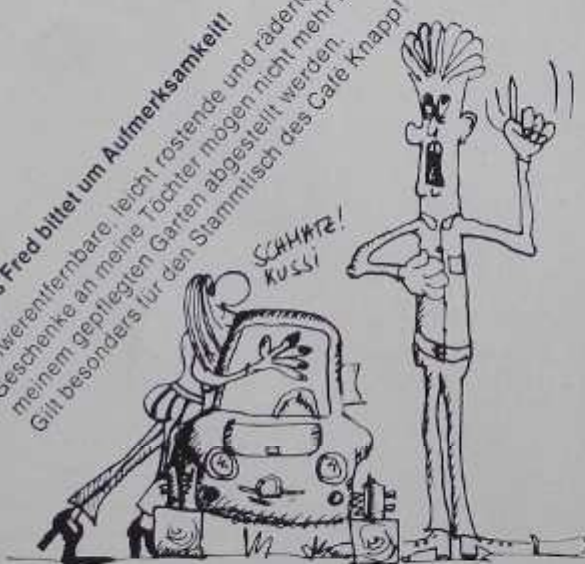 Fred bittet um Aufmerksamkeit!
leicht rostende und räderlo
Geschenke an meine Tochter mögen nicht mehr
meinem gepflegten Garten abgestellt werden.
Gilt besonders für den Stammtisch des Café Knapp!
SCHMATZ!
KUSSI